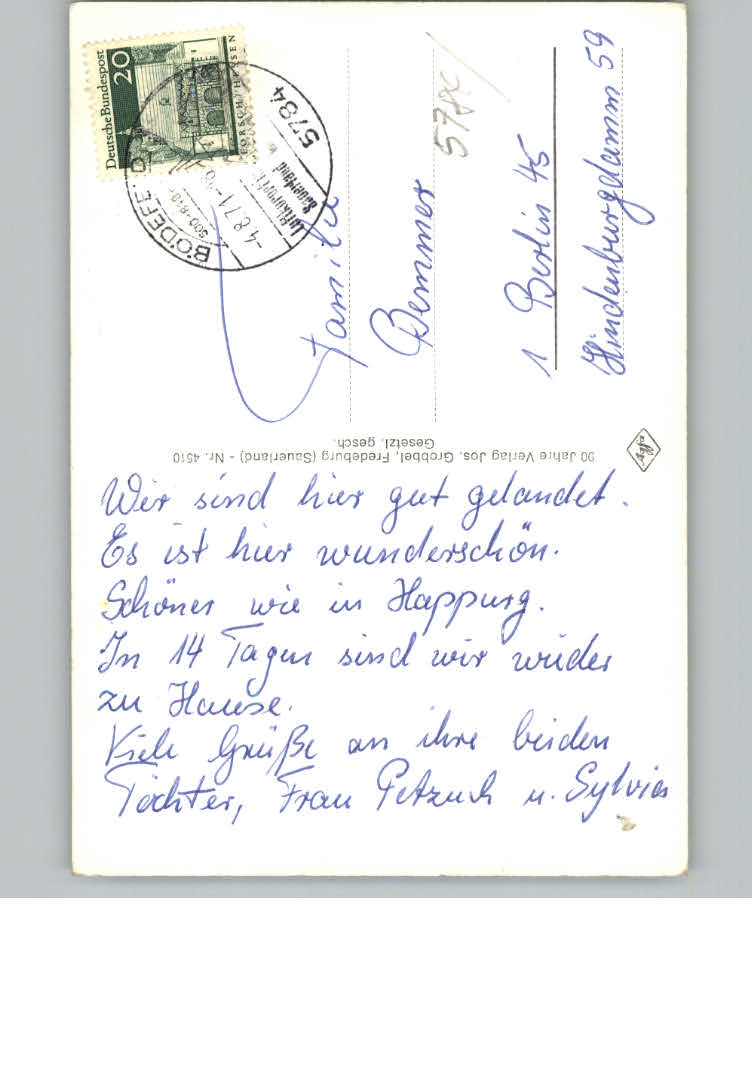 Deutsche Bundespost
20
5784
BÖDEFE
500-810
Luftkurort
Sauerland
-4.8.71-16
Familie
Bemmer
578c
1 Berlin 45
Hindenburgdamm 59
90 Jahre Verlag Jos. Grobbel, Fredeburg (Sauerland) - Nr. 4510
Gesetzl. gesch.
Wir sind hier gut gelandet.
Es ist hier wunderschön.
Schöner wie in Happurg.
In 14 Tagen sind wir wieder
zu Hause.
Viele Grüße an ihre beiden
Töchter, Frau Petzuch u. Sylvia